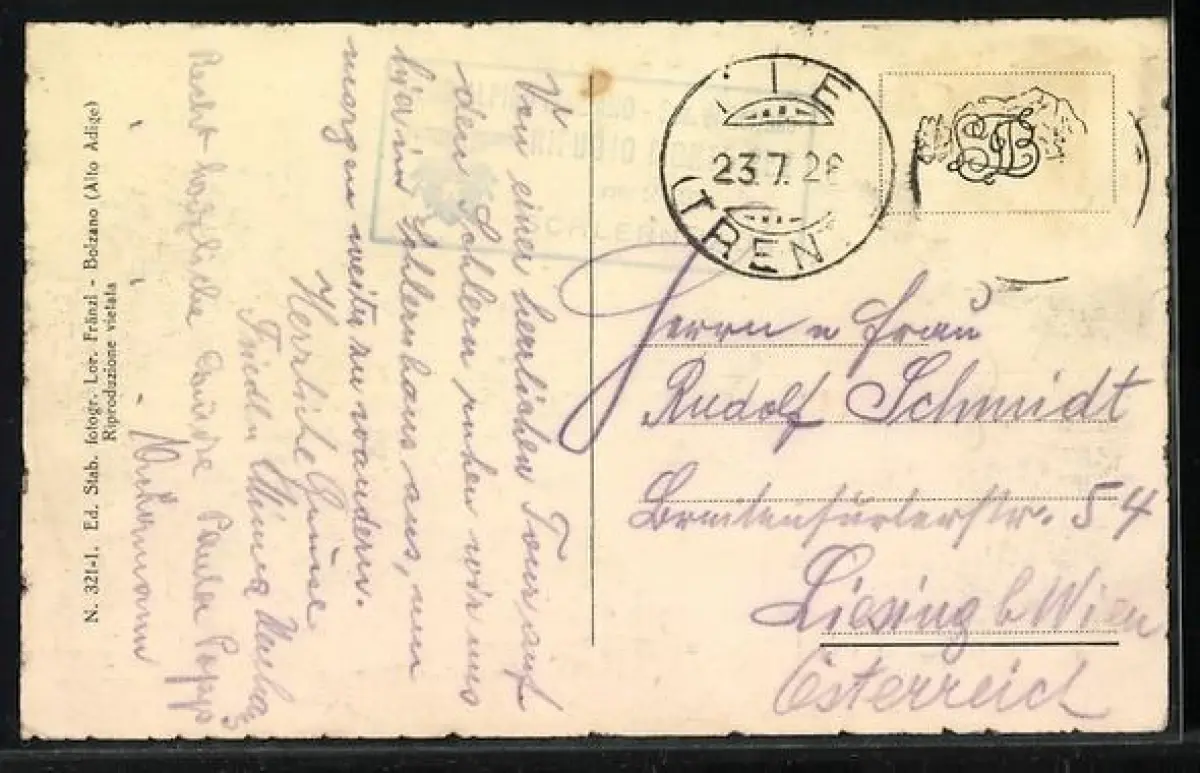 Von einer herrlichen Tour auf
den Schlern ruhen wir uns
hier im Schlernhaus aus, um
morgen weiter zu wandern.
Herzliche Grüsse
Friedln Minna
Recht herzliche Grüsse Paula Popp
N. 321-1. Ed. Stab. fotogr. Lor. Fränzl - Bolzano (Alto Adige)
Riproduzione vietata
IE
23.7.28
(TREN
SCHLERN
Herrn u Frau
Rudolf Schmidt
Breitenfurterstr. 54
Liesing b Wien
Österreich